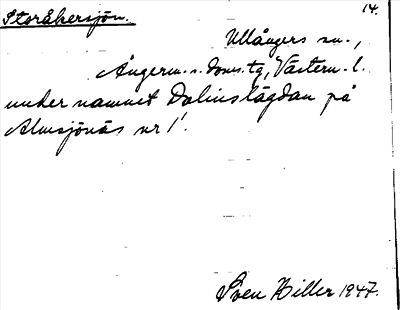 Storåkersjön. 14.
Ullångers sn.,
Ångerm. s. doms. tg, Västern. l.
under namnet Dalinslägdan på
Almsjönäs nr 1.
Sven Hiller 1947.